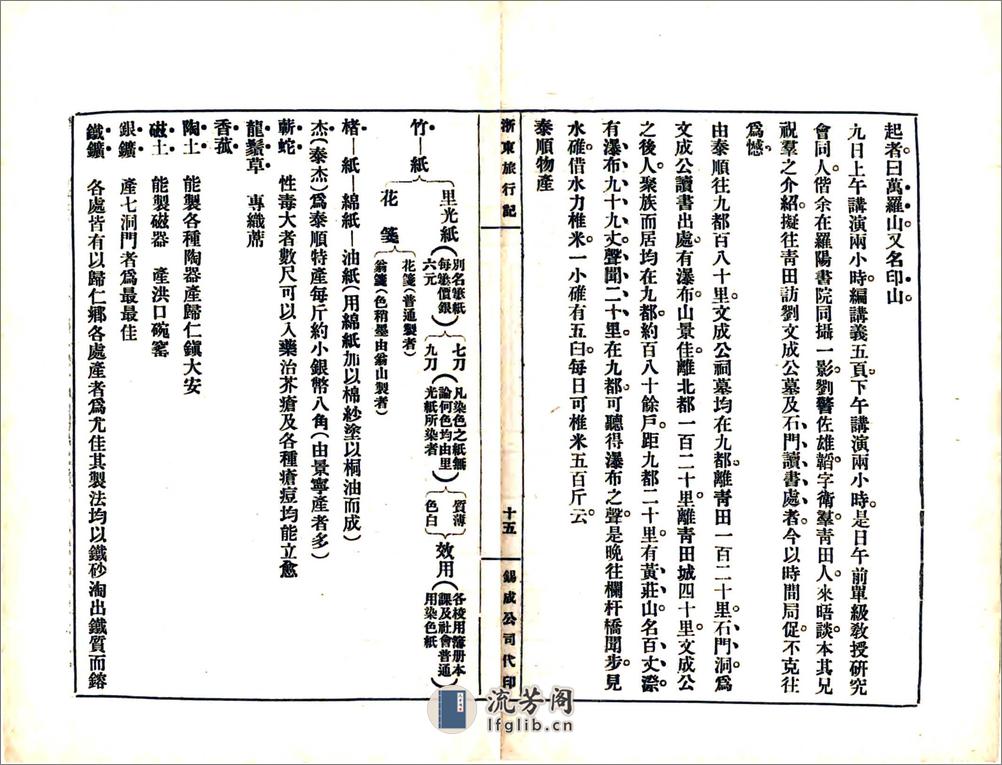 起者曰萬羅山又名印山
九日上午講演兩小時編講義五頁下午講演兩小時是日午前單級教授研究
會同人偕余在羅陽書院同攝一影劉警佐雄韜字衛羣靑田人來晤談本其兄
祝羣之介紹擬往靑田訪劉文成公墓及石門讀書處者今以時間局促不克往
爲憾
由泰順往九都百八十里文成公祠墓均在九都離靑田一百二十里石門洞爲
文成公讀書出處有瀑布山景佳離北都一百二十里離靑田城四十里文成公
之後人聚族而居均在九都約百八十餘戶距九都二十里有黃莊山名百丈漈
有瀑布九十九丈聲聞二十里在九都可聽得瀑布之聲是晚往欄杆橋閒步見
水碓借水力椎米一小碓有五臼每日可椎米五百斤云
泰順物產
浙東旅行記
十五
錫成公司代印
竹—紙
里光紙(別名簅紙每簅價銀六元)
七刀
九刀
(凡染色之紙無論何色均由里光紙所染者)
質薄
色白
效用(各校用簿册本課及社會普通用染色紙)
花箋
花箋(普通製者)
翁箋(色稍墨由翁山製者)
楮—紙—綿紙—油紙(用綿紙加以棉紗塗以桐油而成)
杰(泰杰)爲泰順特產每斤約小銀幣八角(由景寧產者多)
蘄蛇 性毒大者數尺可以入藥治芥瘡及各種瘡痘均能立愈
龍鬚草 專織蓆
香菰
陶土 能製各種陶器產歸仁鎮大安
磁土 能製磁器 產洪口碗窰
銀鑛 產七洞門者爲最最佳
鐵鑛 各處皆有以歸仁鄉各處產者爲尤佳其製法均以鐵砂淘出鐵質而鎔
流芳阁
lfglib.cn